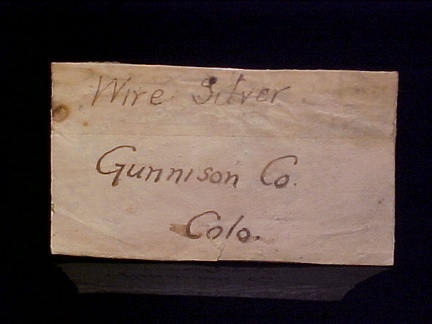 Wire Silver
Gunnison Co.
Colo.